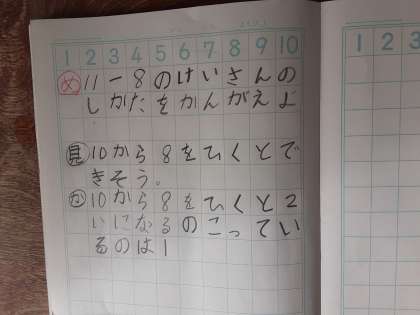 1 2 3 4 5 6 7 8 9 10
め 11-8のけいさんの
しかたをかんがえよ
見 10から8をひくとで
きそう。
か 10から8をひくと2
いになるのこってい
るのは1
1 2 3